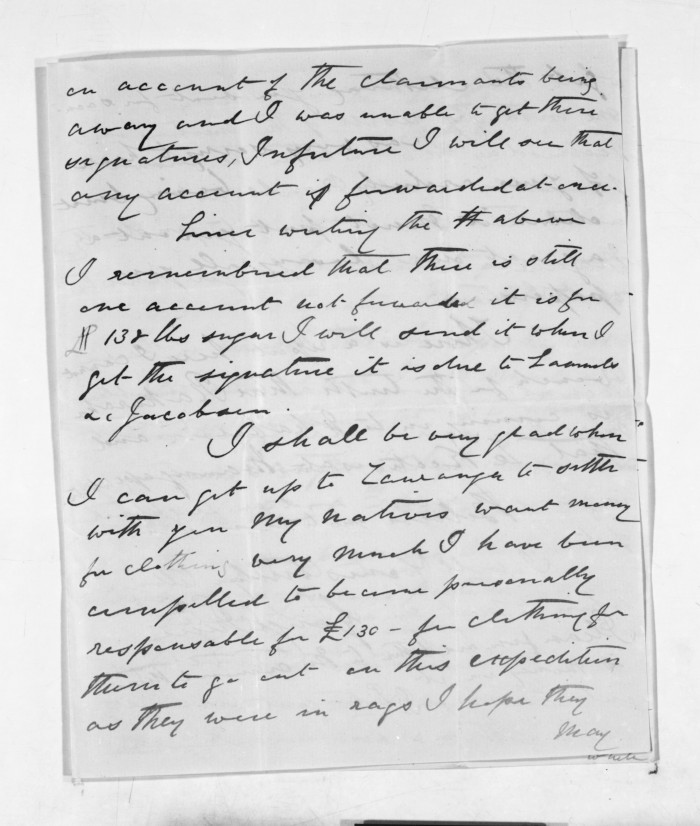 on account of the claimants being
away and I was unable to get there
signatures, Infuture I will see that
any account is forwarded at once.
Since writing the # above
I remembered that there is still
one account not forwarded it is for
138 lbs sugar I will send it when I
get the signature it is due to Samuels
& Jacobsen.
I shall be very glad when
I can get up to Tauranga to settle
with you My Natives want money
for clothing very much I have been
compelled to become personally
responsable for £130 - for clothing for
them to go out on this expedition
as they were in rags I hope they
May